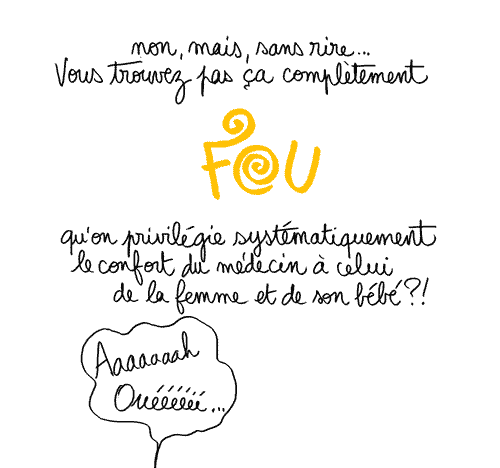 non, mais, sans rire...
Vous trouvez pas ça complètement
FOU
qu'on privilégie systématiquement
le confort du médecin à celui
de la femme et de son bébé?!
Aaaaaaah
Ouéééééé...